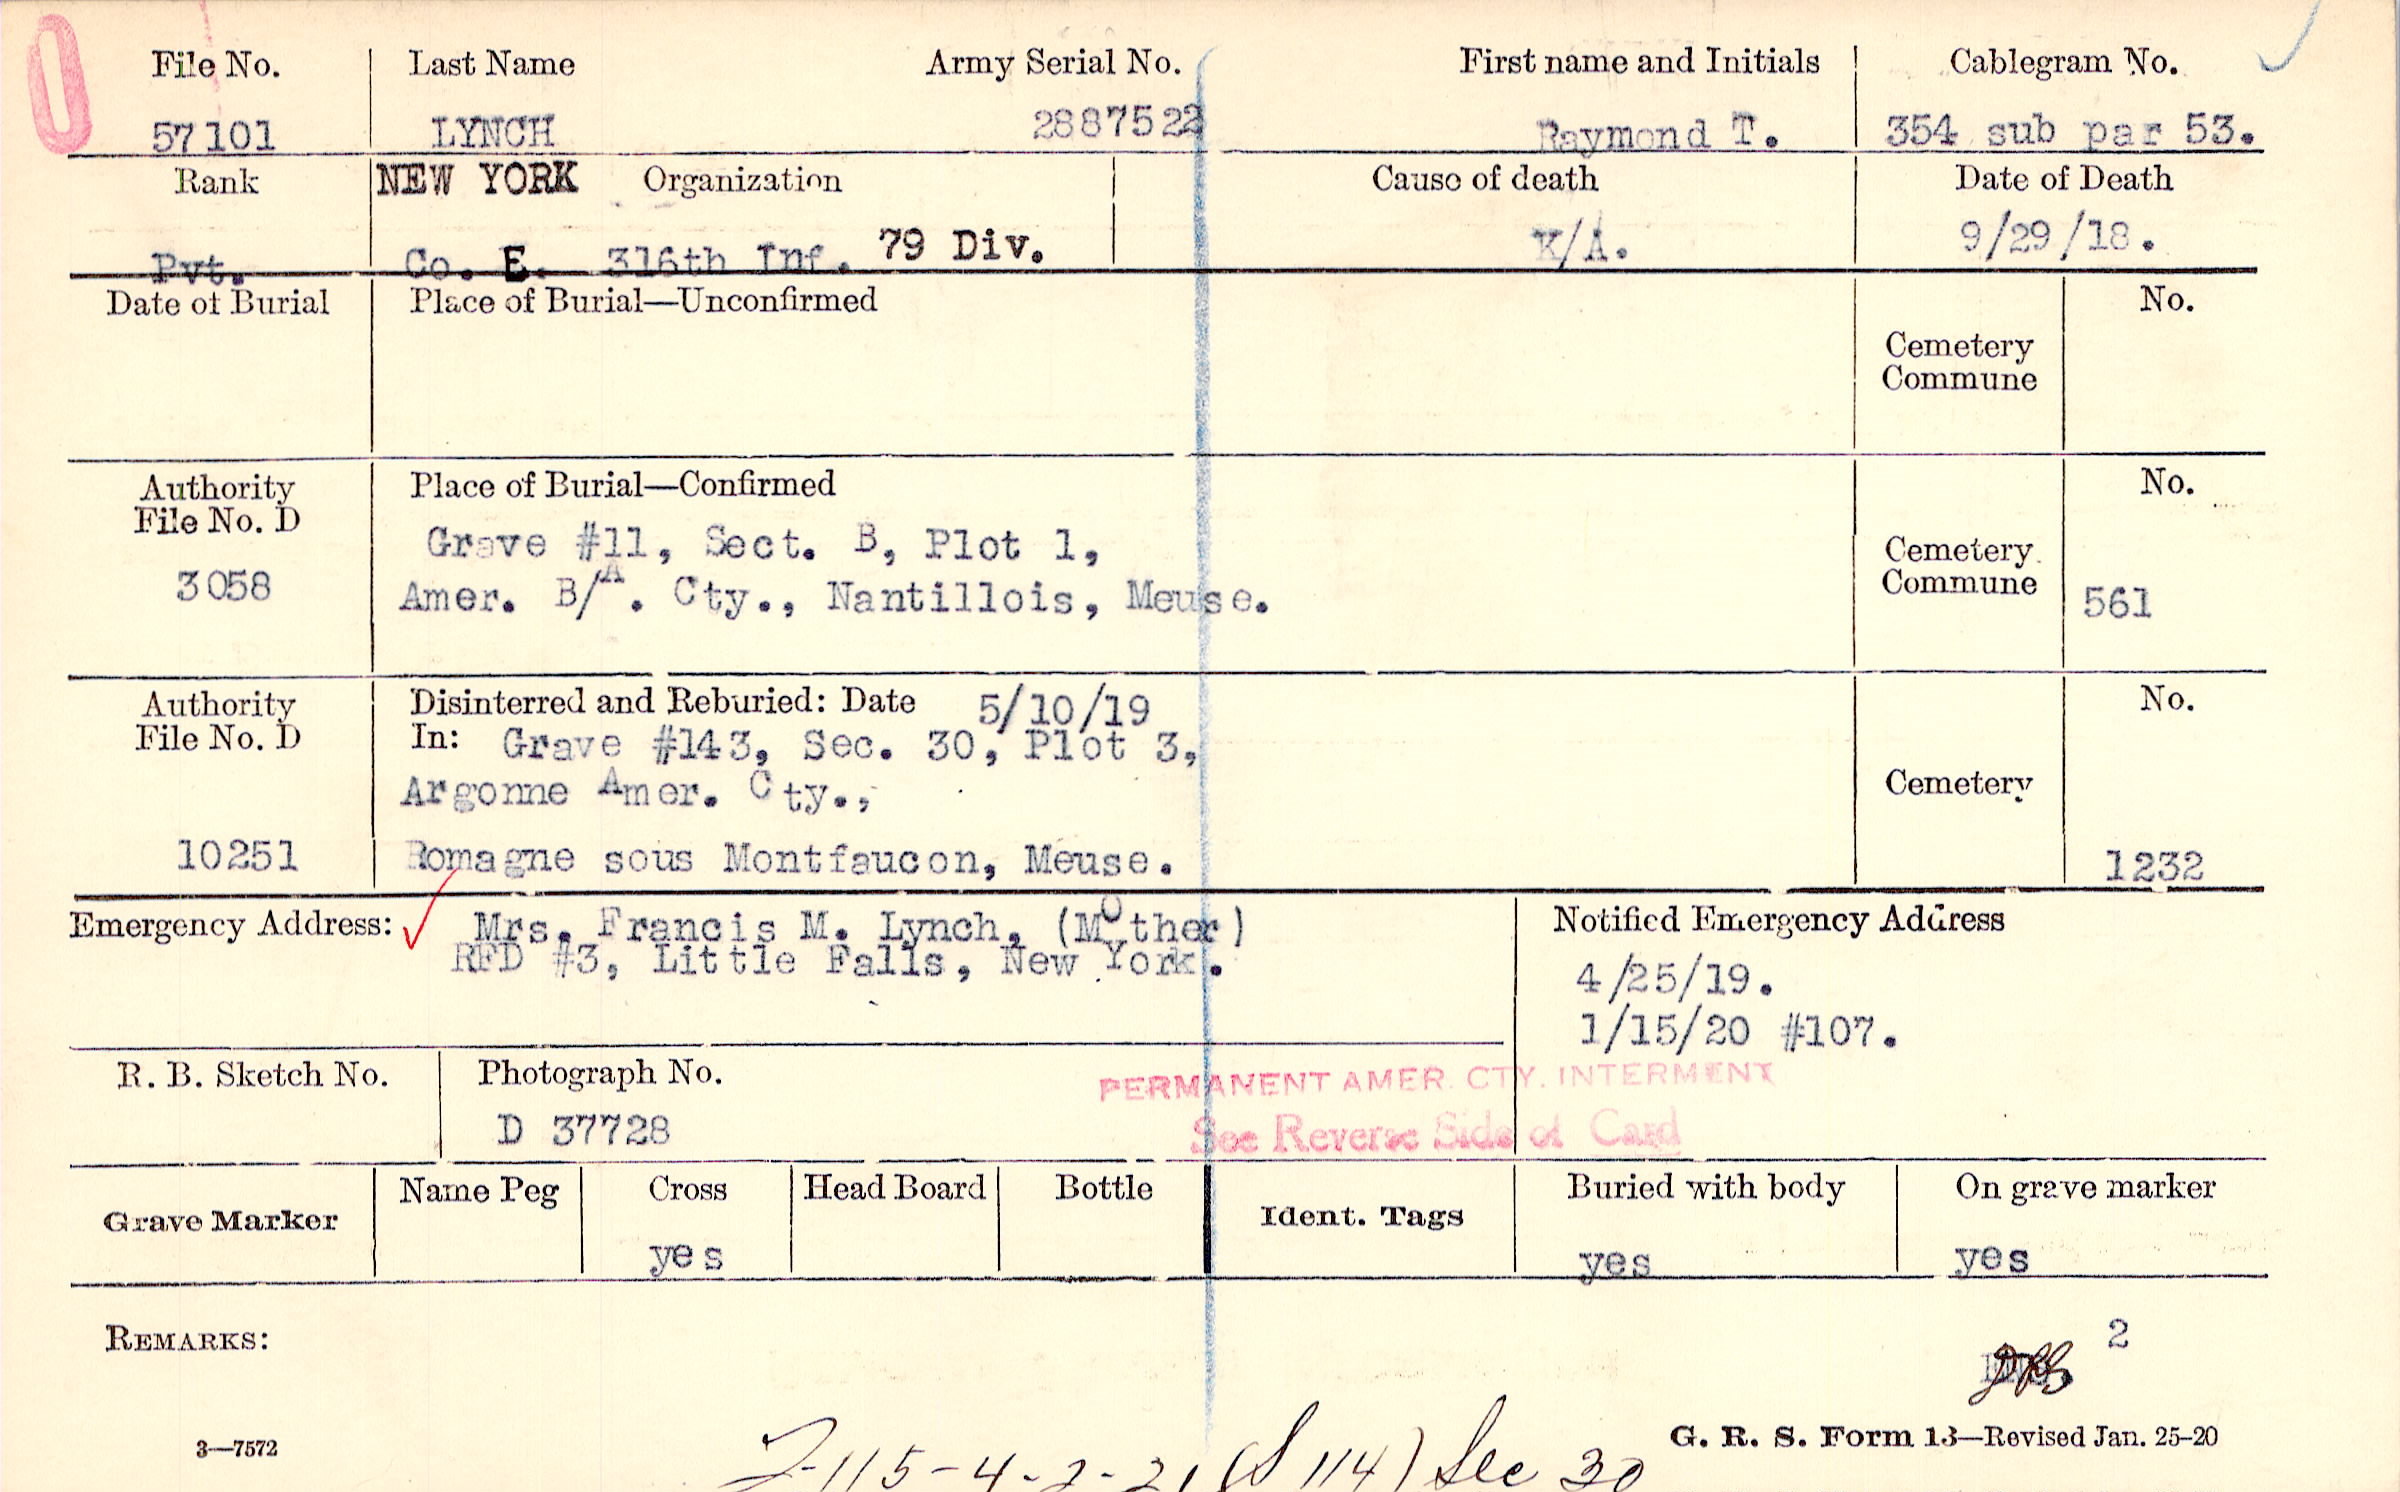 File No. Last Name Army Serial No. First name and Initials Cablegram No.
57101 LYNCH 2887522 Raymond T. 354 sub par 53.
Rank NEW YORK Organization Cause of death Date of Death
Pvt. Co. E. 316th Inf. 79 Div. K/A. 9/29/18.
Date of Burial Place of Burial—Unconfirmed No.
Cemetery
Commune
Authority Place of Burial—Confirmed No.
File No. D
Grave #11, Sect. B, Plot 1,
Cemetery
3058 Amer. B/A. Cty., Nantillois, Meuse. Commune 561
Authority Disinterred and Reburied: Date 5/10/19 No.
File No. D In: Grave #143, Sec. 30, Plot 3,
Argonne Amer. Cty., Cemetery
10251 Romagne sous Montfaucon, Meuse. 1232
Emergency Address: Mrs. Francis M. Lynch, (Mother) Notified Emergency Address
RFD #3, Little Falls, New York. 4/25/19.
1/15/20 #107.
R. B. Sketch No. Photograph No. PERMANENT AMER. CTY. INTERMENT
D 37728 See Reverse Side of Card
Grave Marker Name Peg Cross Head Board Bottle Ident. Tags Buried with body On grave marker
yes yes yes
REMARKS: 2
3—7572 G. R. S. Form 13—Revised Jan. 25-20
(S 114) Sec 30